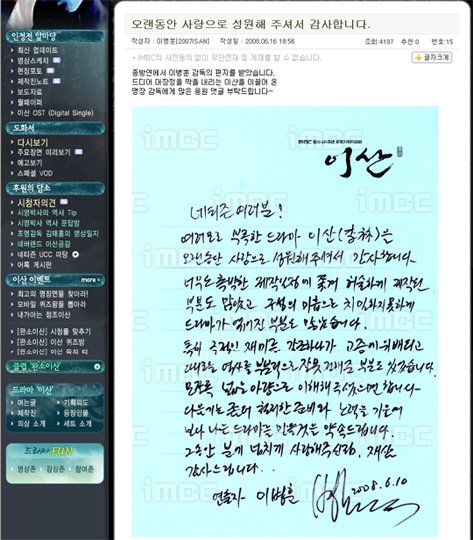 인정전 앞마당
최신 업데이트
영상스케치
현장포토
제작진노트
보도자료
월페이퍼
이산 OST (Digital Single)
도화서
다시보기
주요장면 미리보기
예고보기
스페셜 VOD
후원의 담소
시청자의견
시영박사의 역사 Tip
시영박사 역사 문답방
조명감독 김태홍의 영상일지
네버랜드 이산공감
네티즌 UCC 마당
어록 게시판
이산 이벤트 more
최고의 명장면을 찾아라!
모바일 퀴즈왕을 뽑아라
내가아는 정조이산
[완소이산] 시청률 맞추기
[완소이산] 이산 퀴즈방
클럽 '완소이산'
드라마 '이산'
여는글 기획의도
제작진 등장인물
의상 소개 세트 소개
드라마 FUN
영상존 감상존 참여존
오랜동안 사랑으로 성원해 주셔서 감사합니다.
작성자 : 이병훈[2007ISAN] 작성일 : 2008,06,16 18:56 조회:4197 추천:0 번호:15
- iMBC의 사전동의 없이 무단전재 및 게재를 할 수 없습니다.
글자크기
종방연에서 이병훈 감독의 편지를 받았습니다.
드디어 대장정을 막을 내리는 이산을 이끌어 온
명장 감독에게 많은 응원 댓글 부탁드립니다~
이산
네티즌 여러분!
여러모로 부족한 드라마 이산(李祘)은
오랜동안 사랑으로 성원해 주셔서 감사합니다.
너무도 촉박한 제작일정에 쫓겨 허술하게 제작된
부분도 많았고 구성의 미흡으로 치밀하지 못하게
드라마가 엮어진 부분도 많았습니다.
특히 극적인 재미를 강조하다가 고증에 위배되고
때로는 역사를 부분적으로 잘못 전해준 부분도 있었습니다.
모쪼록 넓은 아량으로 이해해 주셨으면 합니다.
다음에는 좀더 철저한 준비와 노력을 기울여
보다 나은 드라마를 만들 것을 약속드립니다.
그동안 분에 넘치게 사랑해주신 점, 재삼
감사드립니다..
연출자 이병훈 2008.6.10
iMBC